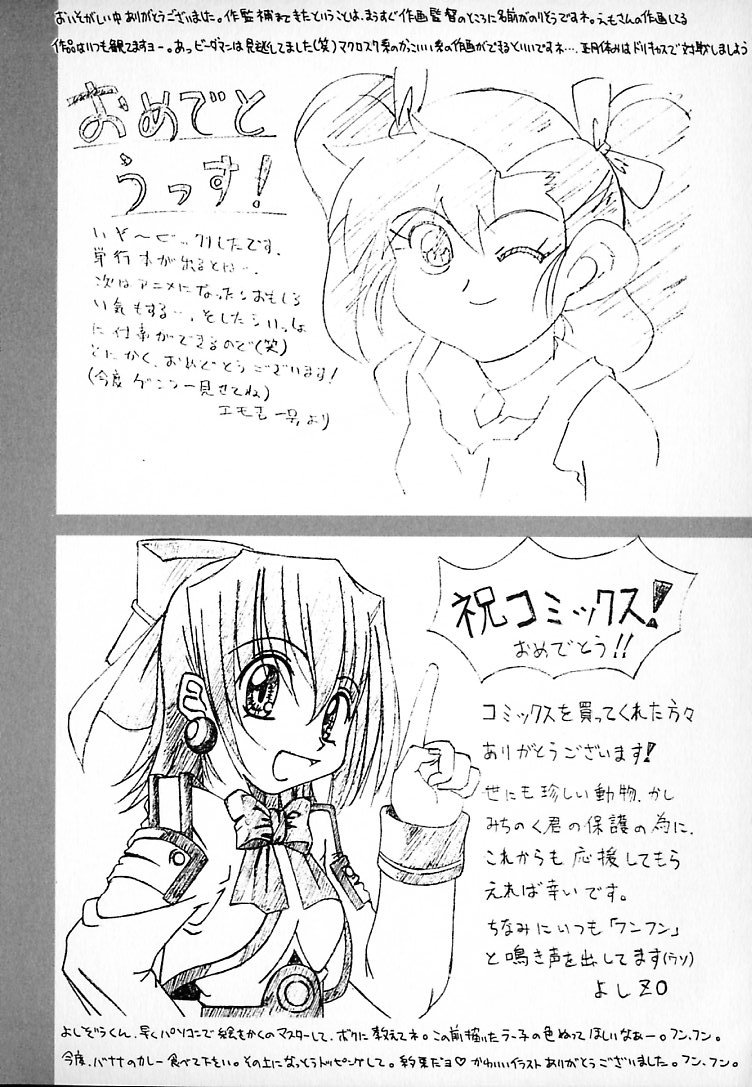 おいそがしい中ありがとうございました。作監補まできたということは、まうすぐ作画監督のところに名前がのりそうですネ。えもさんの作画してる
作品はいつも観てますヨー。あっビーダマンは見逃してました(笑)マクロスク系のかっこいい系の作画ができるといいですネ…。正月休みはドリキャスで対戦しましよう
おめでと
うっす!
いや〜ビックリしたです、
単行本が出るとは…、
次はアニメになったらおもしろ
い気もする…、そしたらいっしょ
に仕事ができるので(笑)
とにかく、おめでとうございます!
(今度ゲンコー見せてね)
より
祝コミックス!
おめでとう!!
コミックスを買ってくれた方々
ありがとうございます!
世にも珍しい動物、かし
みちのく君の保護の為に、
これからも応援してもら
えれば幸いです。
ちなみにいつも「フンフン」
と鳴き声を出してます(ウソ)
よしZO
よしぞうくん、早くパソコンで絵をかくのマスターして、ボクに教えてネ。この前描いたラー子の色ぬってほしいなぁー。フン、フン。
今度、バナナのカレー食べて下さい。その上になっとうトッピングして。約束だヨ♡ かわいいイラストありがとうございました。フン、フン。